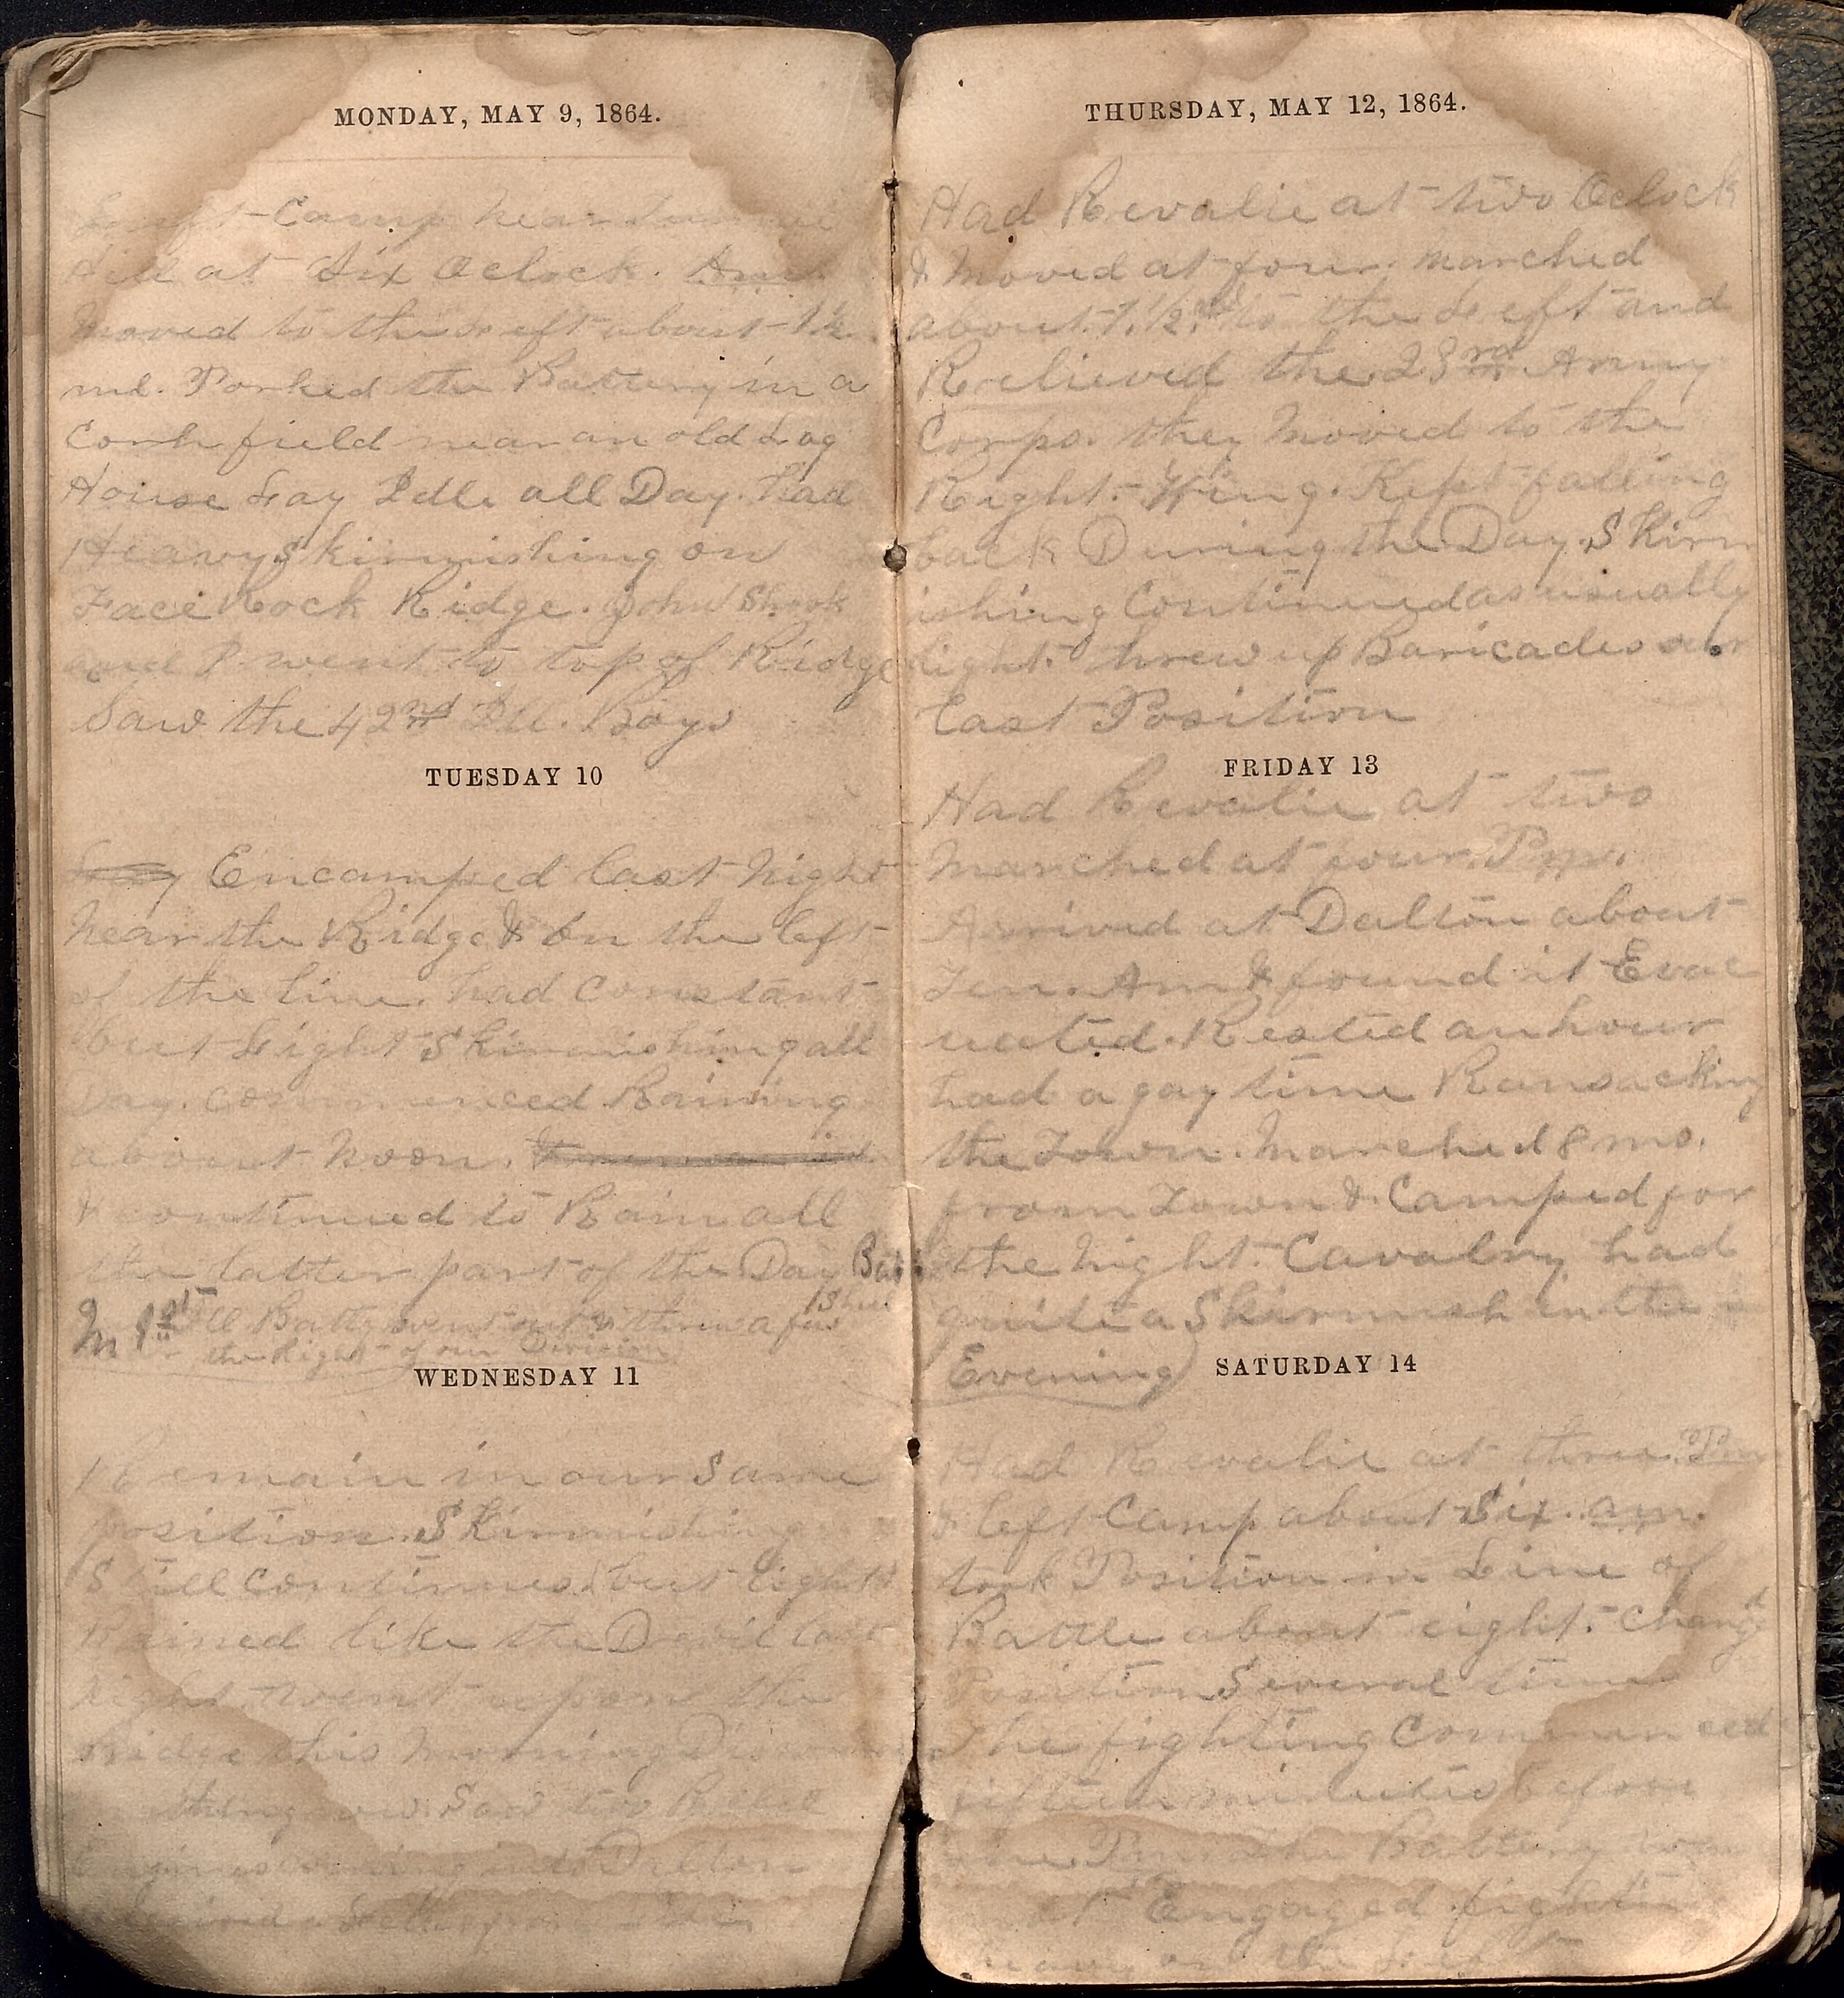 MONDAY, MAY 9, 1864.
Left Camp near Tunnel
Hill at Six Oclock. Am.
Moved to the Left about 1½
ml. Parked the Battery in a
Cornhfield near an old Log
House Lay Idle all Day. had
Heavy Skirmishing on
Face Rock Ridge. John Shook
and I went to top of Ridge
Saw the 42nd Ill. Boys
TUESDAY 10
Encamped last Night
Near the Ridge & on the left
of the line. had Constant
but Light Skirmishing all
Day. Commenced Raining
about Noon.
& continued to Rain all
the latter part of the Day
M 1st Ill Batty went out & threw a few Shell
the Right of our Division
WEDNESDAY 11
Remain in our Same
position. Skirmishing
Still Continues but Light
Rained like the Devil last
Night. went upon the
Ridge this Morning
Saw two Rebel
Engines coming into Dalton
a Letter from
THURSDAY, MAY 12, 1864.
Had Revalie at two Oclock
& Moved at four. marched
about 1.½ to the Left and
Relieved the 23rd Army
Corps. they Moved to the
Right. Wing. Kept falling
back During the Day. Skirm
ishing Continued as usually
light. threw up Baricades our
Last Position
FRIDAY 13
Had Revalie at two
Marched at four. Pm.
Arrived at Dalton about
Ten. Am & found it Evac
uated. Rested an hour
had a gay time Ransacking
the Town. Marched 8 ms.
from Town & Camped for
the Night. Cavalry had
quite a Skirmish in the
Evening
SATURDAY 14
Had Revalie at three. Pm
& left Camp about Six. am.
took Position in Line of
Battle about eight. Chang'd
Position Several time
The fighting Commenced
fifteen minutes before
Pm the Battery
Engaged fighting
heavy on the Left